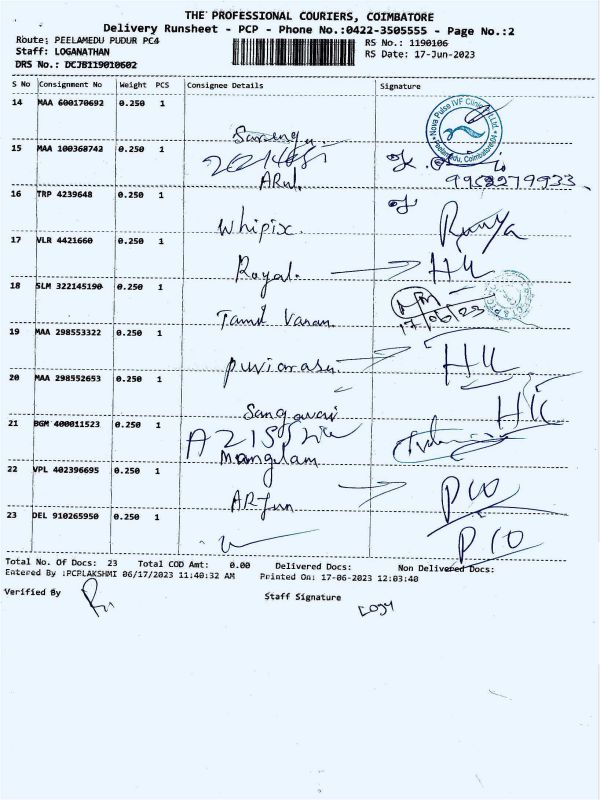 THE PROFESSIONAL COURIERS, COIMBATORE
Delivery Runsheet - PCP - Phone No.:0422-3505555 - Page No.:2
Route: PEELAMEDU PUDUR PC4
RS No.: 1190106
Staff: LOGANATHAN
RS Date: 17-Jun-2023
DRS No.: DCJB119010602
S No Consignment No Weight PCS Consignee Details Signature
14 MAA 600170692 0.250 1
Nova Pulse IVF Clinic Pvt Ltd.
Peelamedu, Coimbatore
15 MAA 100368742 0.250 1
ARul.
9962279933
16 TRP 4239648 0.250 1
Whipix.
17 VLR 4421660 0.250 1
Royal. HK
18 SLM 322145190 0.250 1
17/06/23
Tamil Vanan
19 MAA 298553322 0.250 1
Puviarasu HK
20 MAA 298552653 0.250 1
Sangavai HK
21 BGM 400011523 0.250 1
Mangalam
22 VPL 402396695 0.250 1
ARJun
23 DEL 910265950 0.250 1
Total No. Of Docs: 23 Total COD Amt: 0.00 Delivered Docs: Non Delivered Docs:
Entered By :PCPLAKSHMI 06/17/2023 11:40:32 AM Printed On: 17-06-2023 12:03:40
Verified By
Staff Signature
Logu